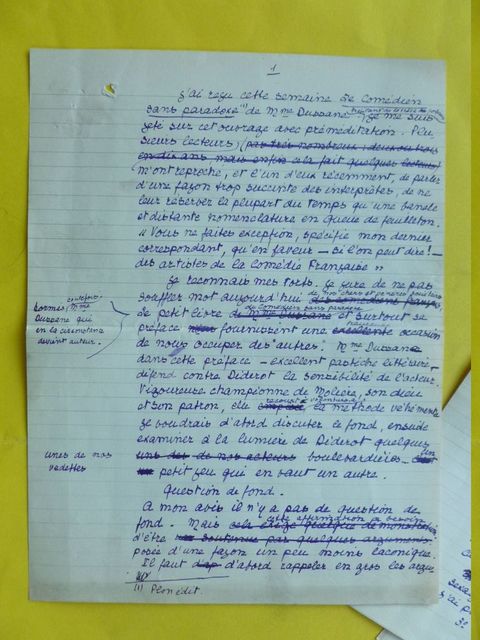 1
J'ai reçu cette semaine Le Comédien
sans paradoxe (1) de Mme Dussane Je me suis
jeté sur cet ouvrage avec préméditation. Plu
sieurs lecteurs, (pas très nombreux, deux ou trois
en dix ans mais enfin cela fait quelques lecteurs)
m'ont reproché, et l'un d'eux récemment, de parler
d'une façon trop succinte des interprètes, de ne
leur réserver la plupart du temps qu'une banale
et distante nomenclature en queue de feuilleton.
" Vous ne faites exception, spécifie mon dernier
correspondant, qu'en faveur — si l'on peut dire ! —
des artistes de la Comédie Française "
Je reconnais mes torts. Je jure de ne pas
souffler mot aujourd'hui de mes chers et premiers
hormis toutefois
Mme
Dussane qui
en la circonstance
devient auteur.
Le petit livre Le Comédien sans paradoxe et surtout sa
préface fourniront une excellente occasion
de nous occuper des "autres". Mme Dussane
dans cette préface — excellent pastiche littéraire —
défend contre Diderot la sensibilité de l'acteur.
Vigoureuse championne de Molière, son dieu
et son patron, elle recourt à la méthode véhémente
Je voudrais d'abord discuter le fond, ensuite
examiner à la lumière de Diderot quelques
unes de nos
vedettes
uns des de nos acteurs boulevardières — un
petit jeu qui en vaut un autre.
Question de fond.
A mon avis il n'y a pas de question de
fond. Mais cette affirmation a besoin
d'être soutenue par quelques arguments
posée d'une façon un peu moins laconique.
Il faut d'abord rappeler en gros les argu
(1) Plon édit.